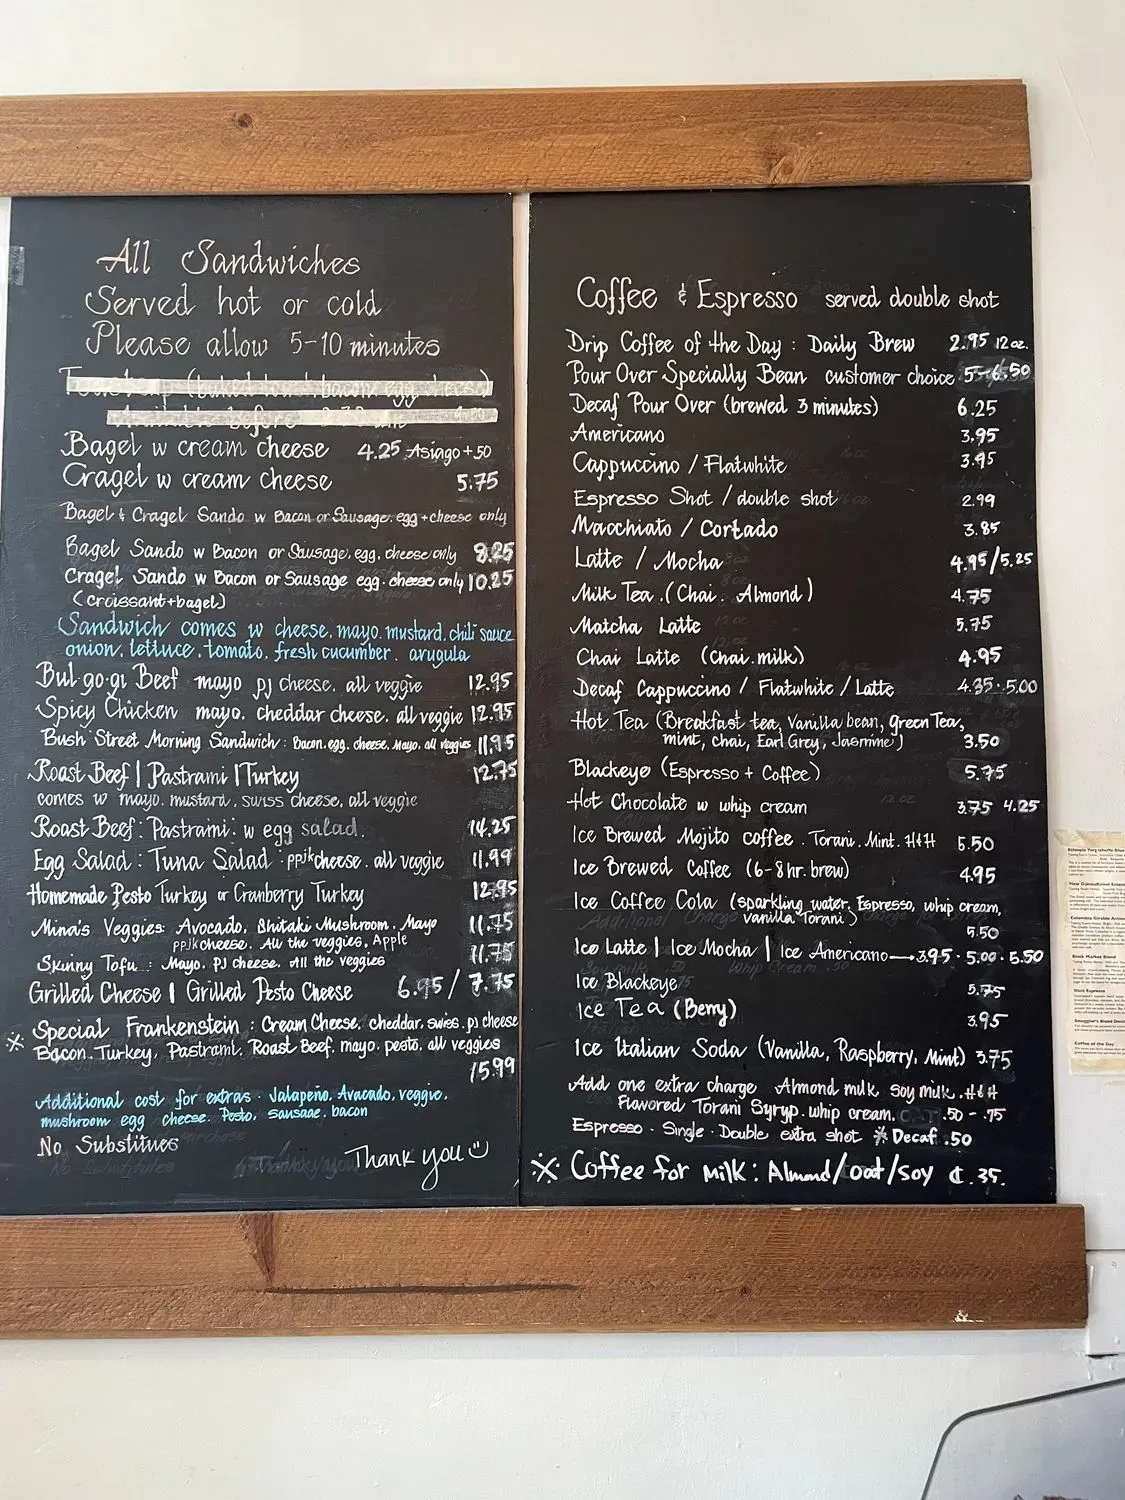 All Sandwiches
Served hot or cold
Please allow 5-10 minutes
(baked bacon egg cheese)
before
Bagel w cream cheese 4.25 Asiago +50
Cragel w cream cheese 5.75
Bagel & Cragel Sando w Bacon or Sausage. egg + cheese only
Bagel Sando w Bacon or Sausage, egg, cheese only 8.25
Cragel Sando w Bacon or Sausage egg. cheese only 10.25
(croissant+bagel)
Sandwich comes w cheese, mayo, mustard, chili sauce
onion, lettuce, tomato, fresh cucumber, arugula
Bul·go·gi Beef mayo pj cheese, all veggie 12.95
Spicy Chicken mayo. cheddar cheese. all veggie 12.95
Bush Street Morning Sandwich : Bacon. egg. cheese, Mayo, all veggies 11.95
Roast Beef | Pastrami | Turkey 12.75
comes w mayo. mustard, swiss cheese, all veggie
Roast Beef : Pastrami : w egg salad. 14.25
Egg Salad : Tuna Salad · ppjk cheese. all veggie 11.99
Homemade Pesto Turkey or Cranberry Turkey 12.95
Mina's Veggies: Avocado, Shitaki Mushroom. Mayo 11.75
ppjk cheese. All the veggies, Apple
Skinny Tofu : Mayo. PJ cheese. All the veggies 11.75
Grilled Cheese | Grilled Pesto Cheese 6.95 / 7.75
※ Special Frankenstein : Cream Cheese, cheddar, swiss. pj cheese
Bacon. Turkey, Pastrami, Roast Beef, mayo. pesto, all veggies
15.99
Additional cost for extras · Jalapeño, Avacado, veggie,
mushroom egg cheese. Pesto, sausage, bacon
No Substitues
Thank you
Coffee & Espresso served double shot
Drip Coffee of the Day : Daily Brew 2.95 12 oz.
Pour Over Specially Bean customer choice 5-6.50
Decaf Pour Over (brewed 3 minutes) 6.25
Americano 3.95
Cappuccino / Flatwhite 3.95
Espresso Shot / double shot 2.99
Macchiato / Cortado 3.85
Latte / Mocha 4.95/5.25
Milk Tea (Chai. Almond) 4.75
Matcha Latte 5.75
Chai Latte (Chai. milk) 4.95
Decaf Cappuccino / Flatwhite / Latte 4.35 · 5.00
Hot Tea (Breakfast tea, Vanilla bean, green Tea,
mint, chai, Earl Grey, Jasmine) 3.50
Blackeye (Espresso + Coffee) 5.75
Hot Chocolate w whip cream 3.75 4.25
Ice Brewed Mojito coffee . Torani. Mint. H&H 5.50
Ice Brewed Coffee (6-8 hr. brew) 4.95
Ice Coffee Cola (sparkling water, Espresso, whip cream,
vanilla Torani) 5.50
Ice Latte | Ice Mocha | Ice Americano 3.95 · 5.00 · 5.50
Ice Blackeye 5.75
Ice Tea (Berry) 3.95
Ice Italian Soda (Vanilla, Raspberry, Mint) 3.75
Add one extra charge Almond milk, soy milk, H&H
Flavored Torani Syryp. whip cream. .50 - .75
Espresso · Single · Double extra shot ※ Decaf .50
※ Coffee for milk : Almond/oat/soy ¢ .35.
Colombia Giraldo
Blink Market Blend
Coffee of the Day